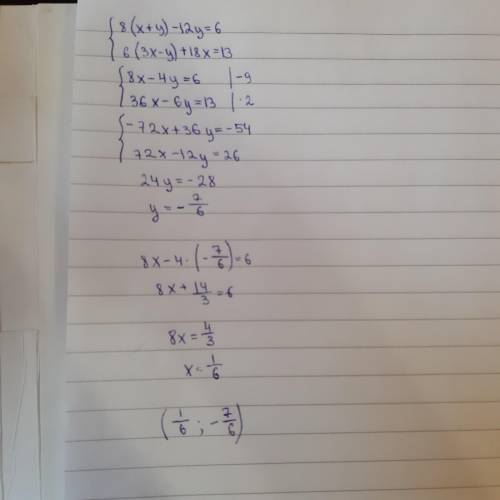 {8(x+y)-12y=6
{6(3x-y)+18x=13
{8x-4y=6 |-9
{36x-6y=13 |·2
{-72x+36y=-54
{72x-12y=26
24y=-28
y=-7/6
8x-4·(-7/6)=6
8x+14/3=6
8x=4/3
x=1/6
(1/6;-7/6)